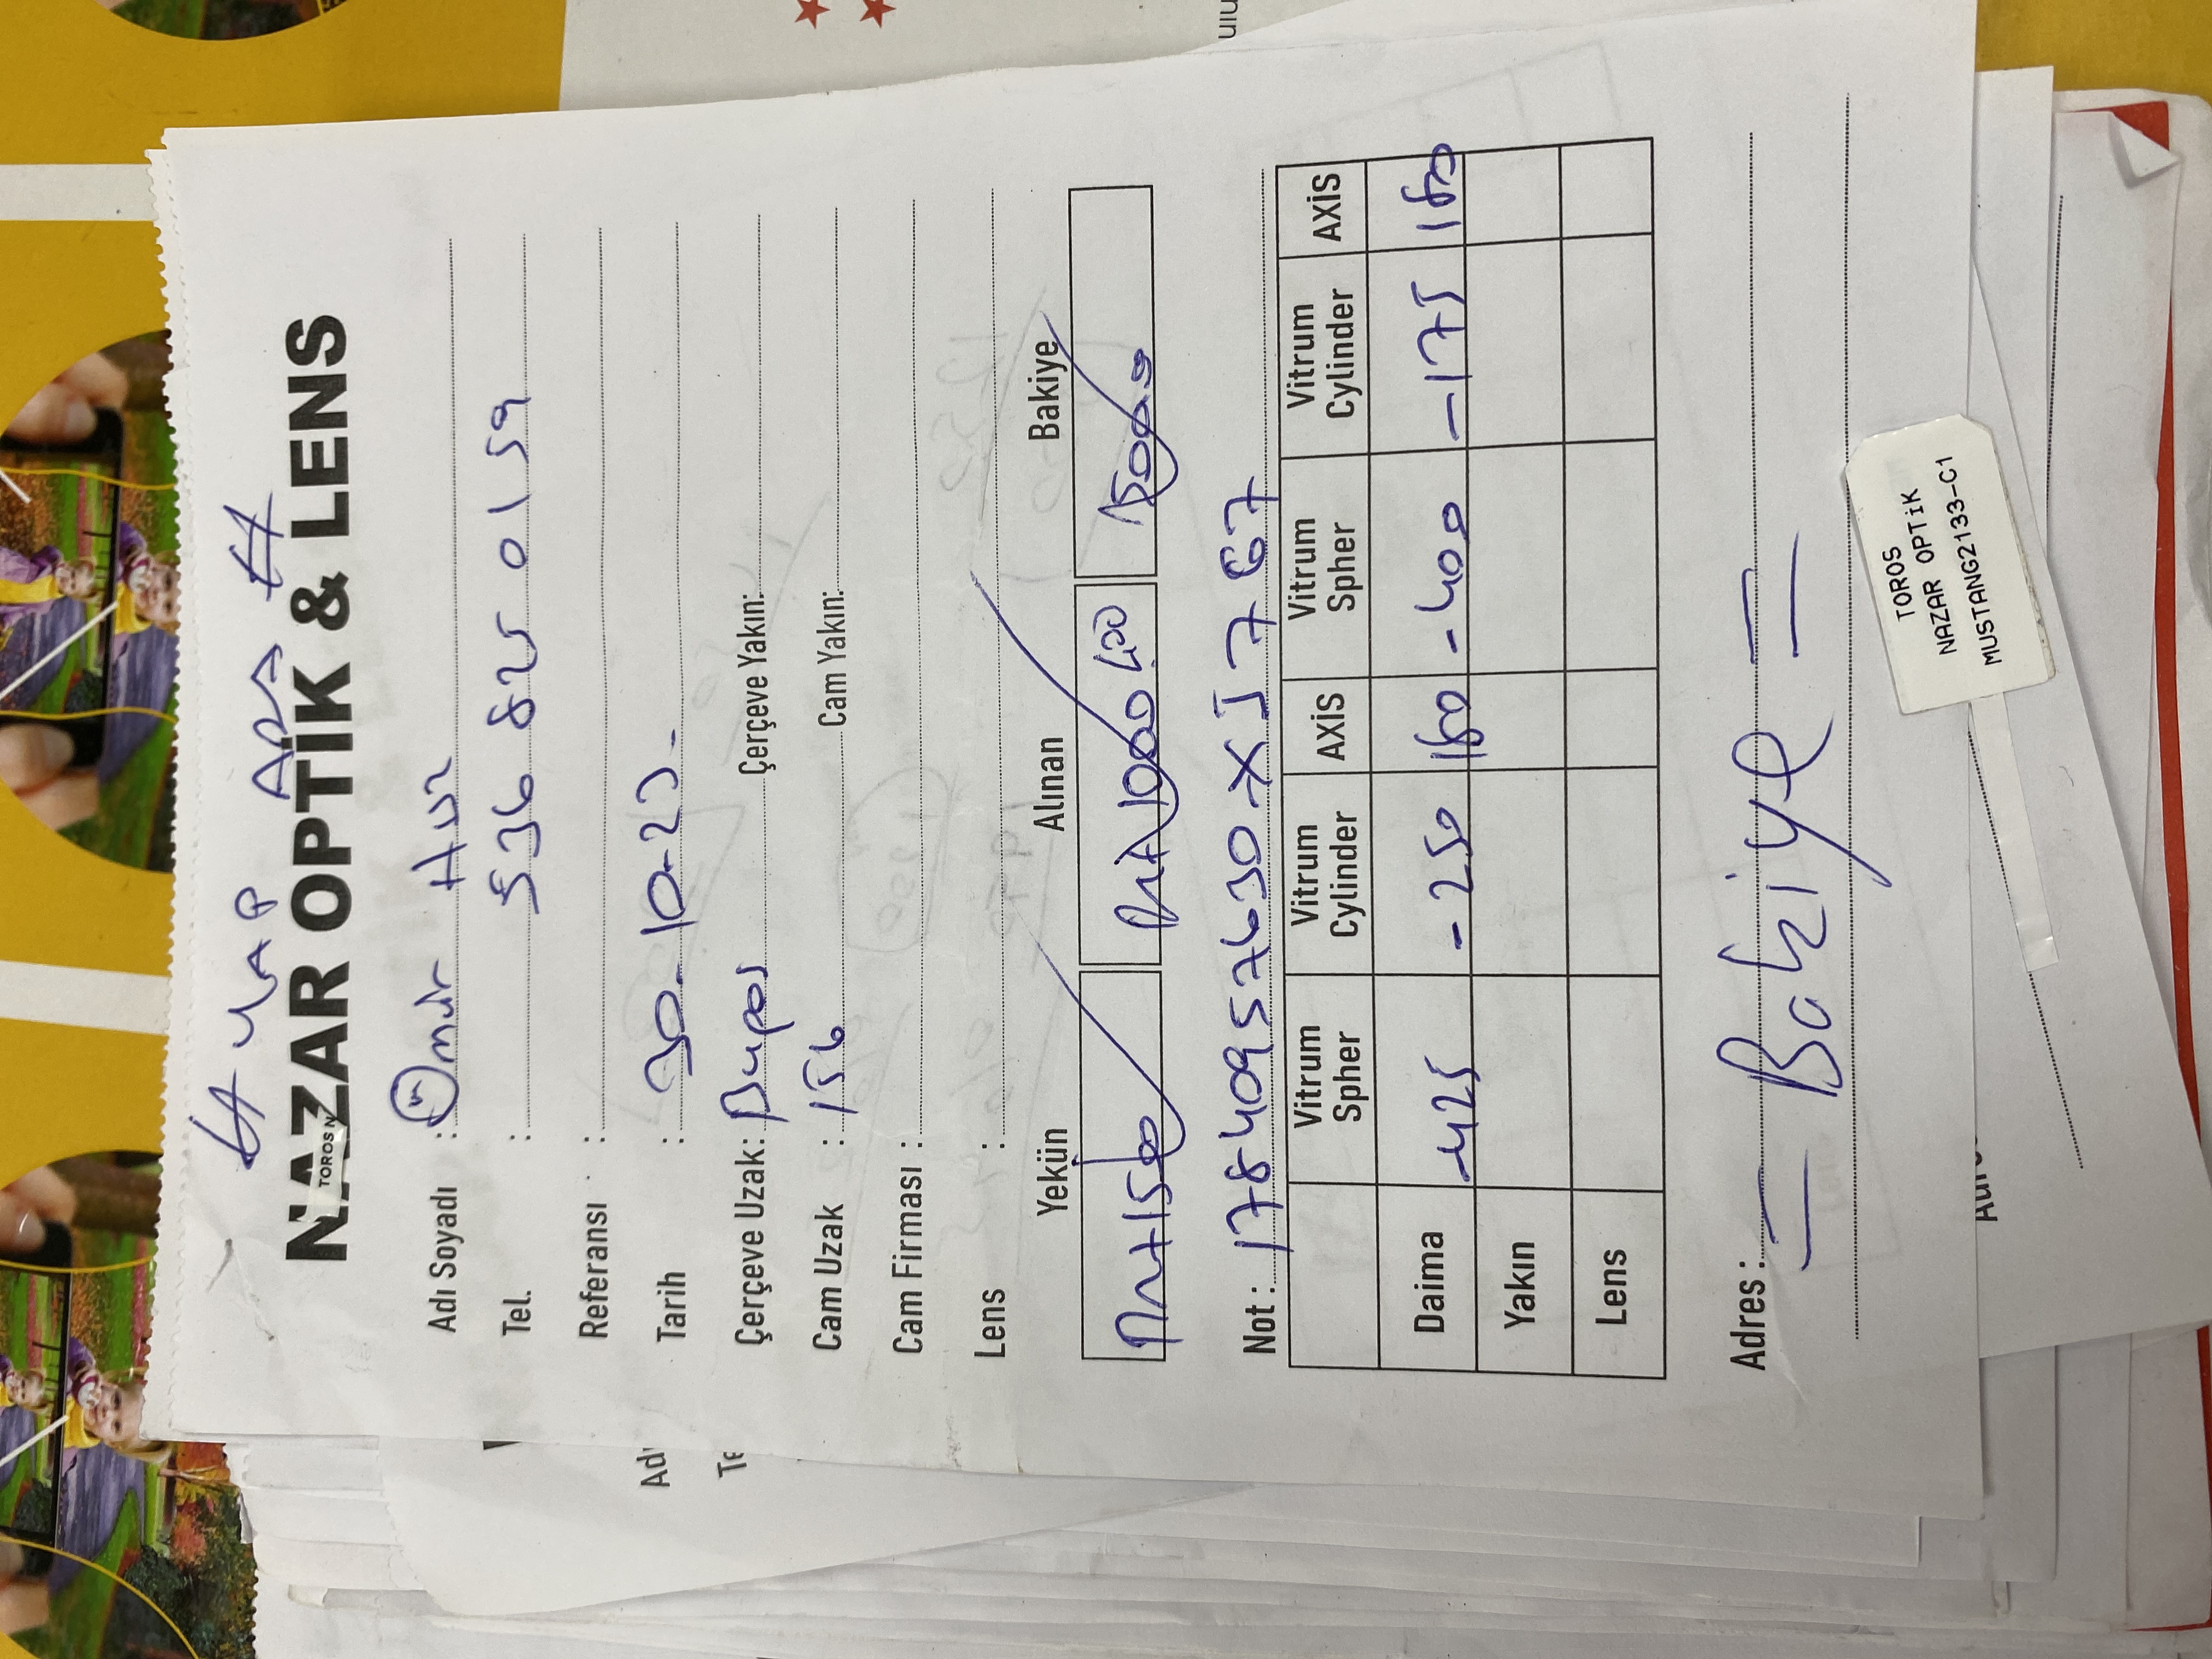 # YAP ARA #
NAZAR OPTİK & LENS
TOROS N
Adı Soyadı : Ömür
Tel. : 536 825 01 59
Referansı :
Tarih : 30-10-23-
Çerçeve Uzak: Çerçeve Yakın:
Cam Uzak : 156 Cam Yakın:
Cam Firması :
Lens :
Yekün Alınan Bakiye
+1500 1000 400
Not : 17840957630 XJ767
Vitrum Spher Vitrum Cylinder AXİS Vitrum Spher Vitrum Cylinder AXİS
Daima -425 -250 180 -400 -175 180
Yakın
Lens
Adres : = Bakiye =
TOROS
NAZAR OPTiK
MUSTANG2133-C1